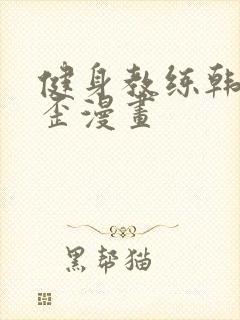 健身教练韩
歪漫畫
黑帮猫